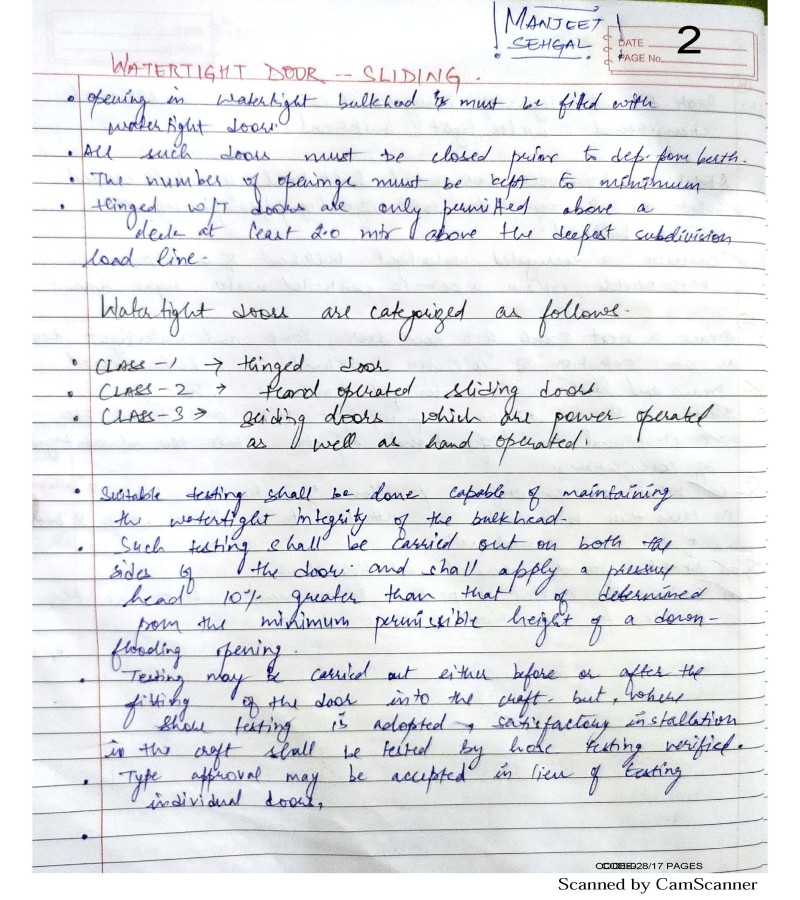 MANJEET
SEHGAL
DATE
PAGE No.
2
WATERTIGHT DOOR -- SLIDING.
• opening in watertight bulkhead must be fitted with
watertight doors.
• All such doors must be closed prior to dep. from berth.
• The number of openings must be kept to minimum
• Hinged W/T doors are only permitted above a
deck at least 2.0 mtr above the deepest subdivision
load line.
Watertight doors are categorized as follows.
• CLASS-1 → Hinged door
• CLASS-2 → Hand operated sliding doors
• CLASS-3 → sliding doors which are power operated
as well as hand operated.
• Suitable testing shall be done capable of maintaining
the watertight integrity of the bulkhead.
• Such testing shall be carried out on both the
sides of the door and shall apply a pressure
head 10% greater than that of determined
from the minimum permissible height of a down-
flooding opening.
• Testing may be carried out either before or after the
fitting of the door into the craft. but, where
shore testing is adopted, satisfactory installation
in the craft shall be tested by hose testing verified.
• Type approval may be accepted in lieu of testing
individual doors,
•
28/17 PAGES
Scanned by CamScanner